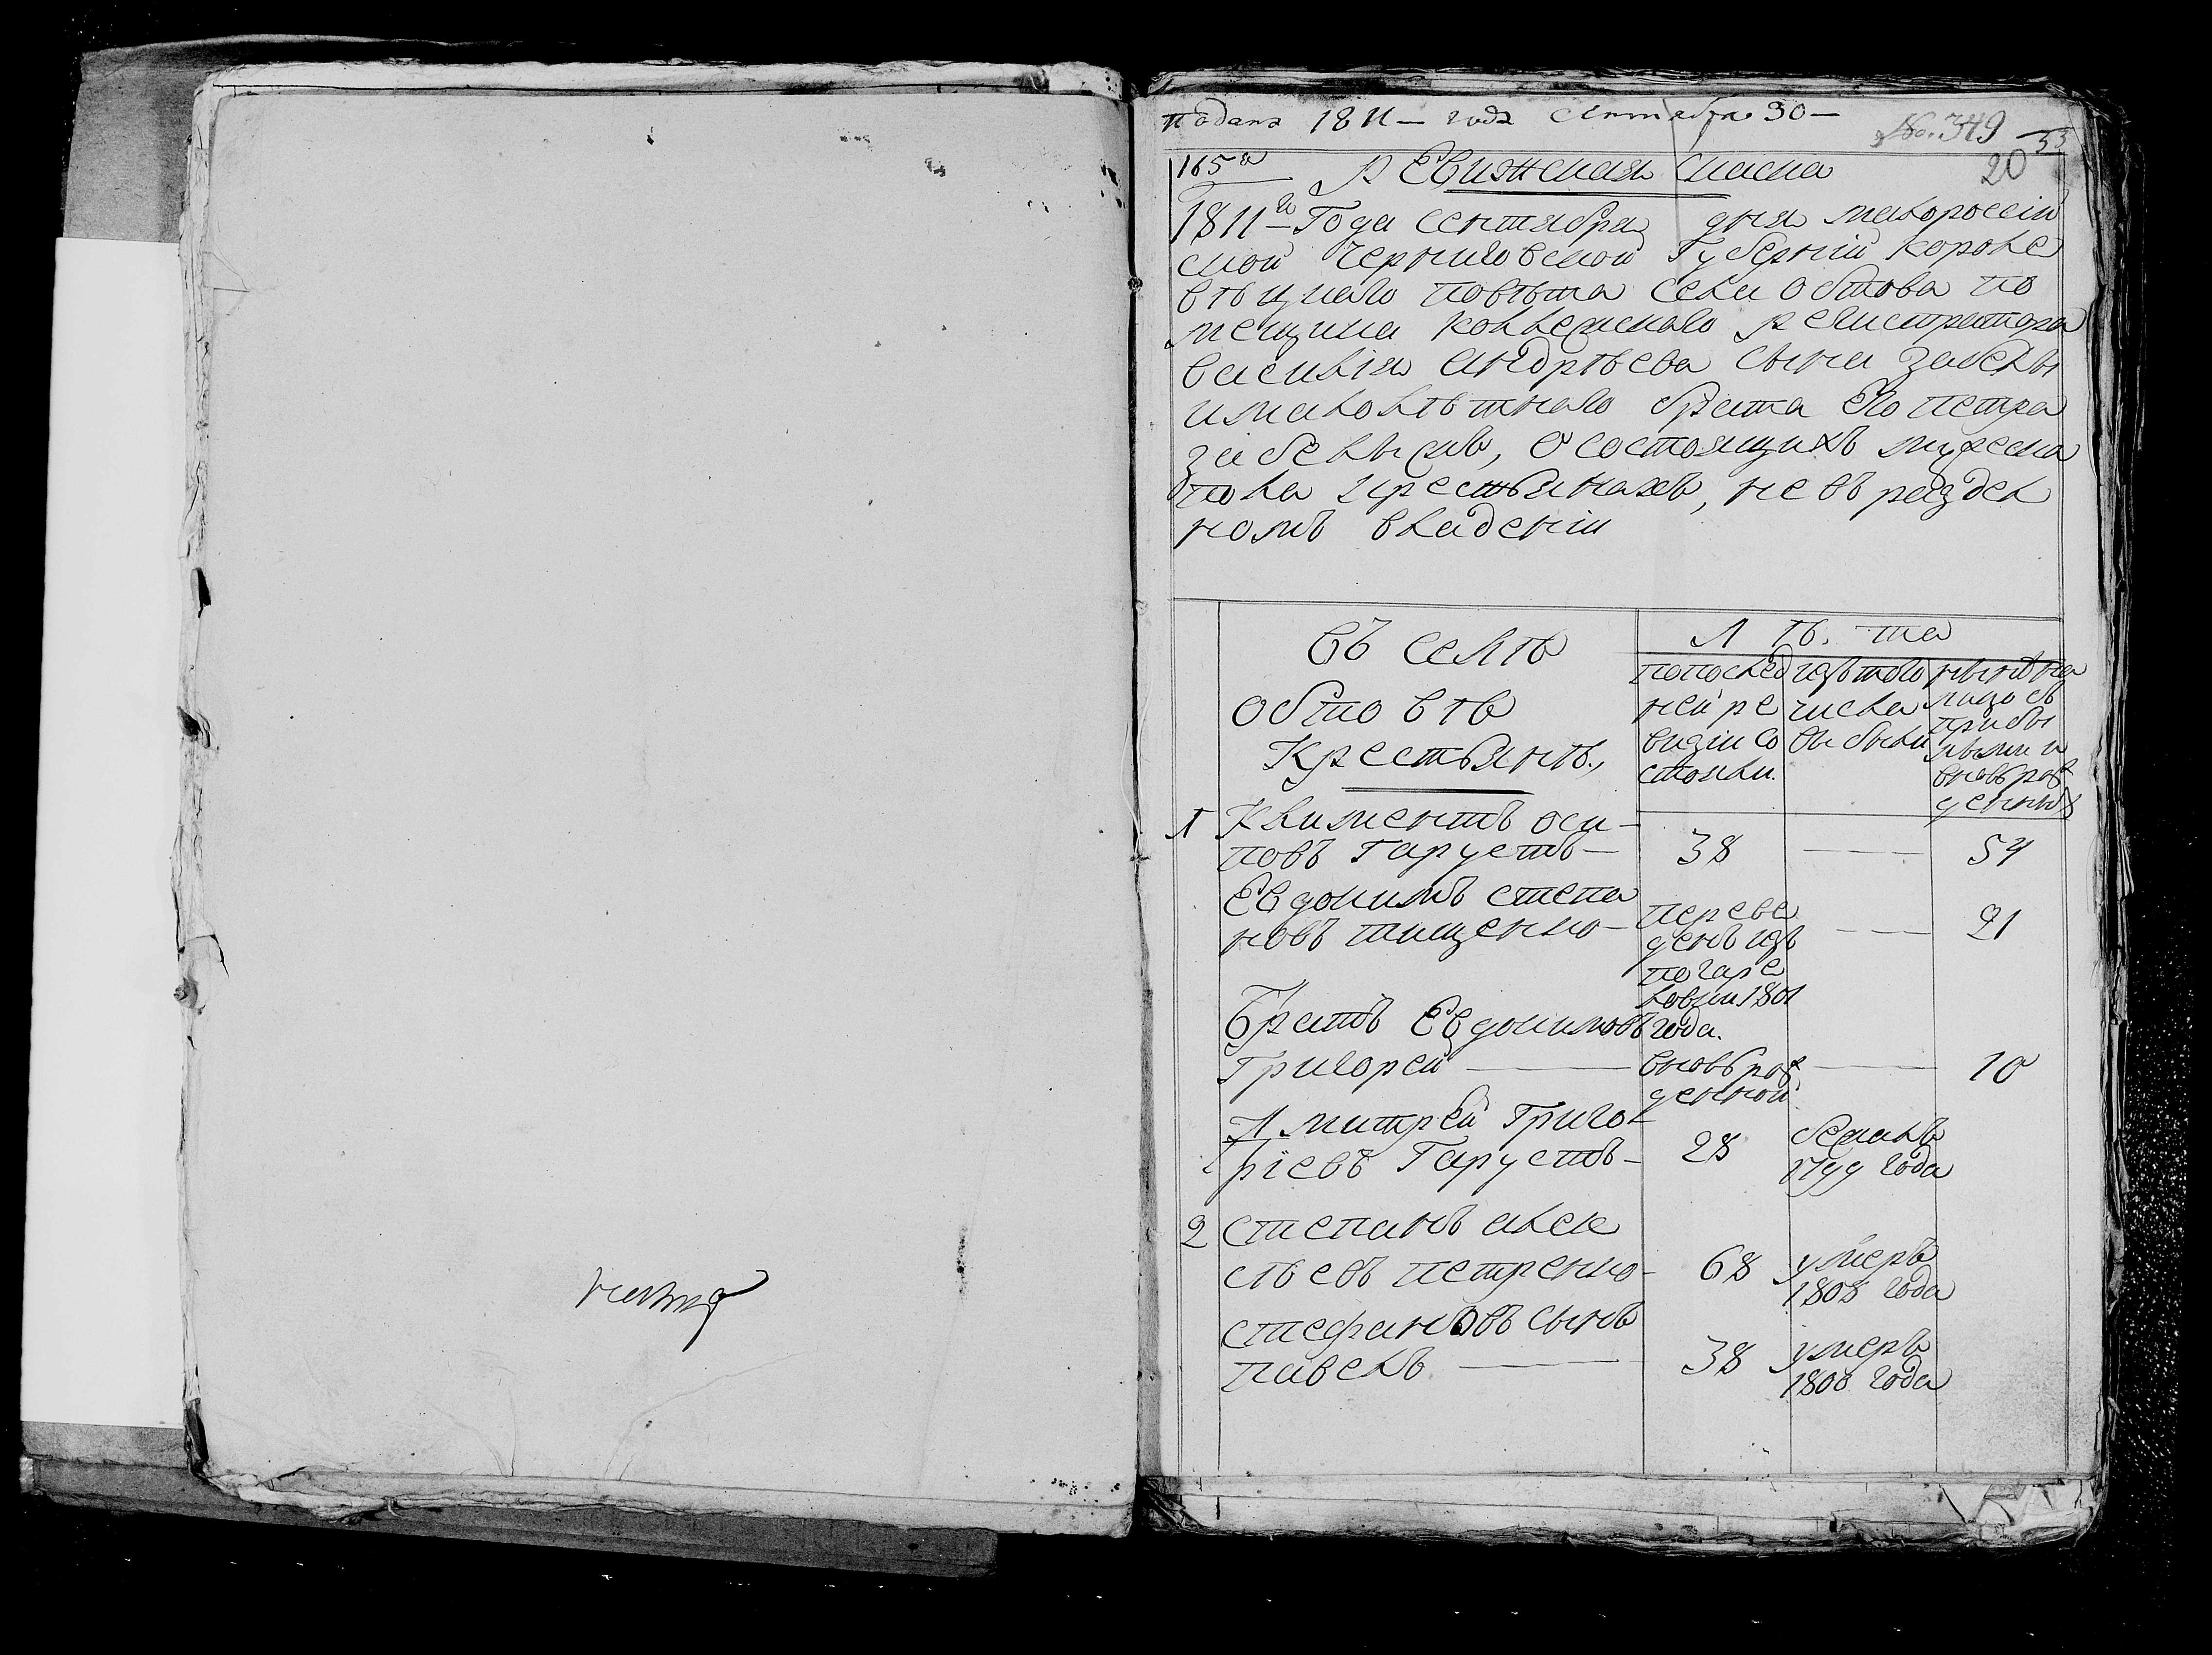 подана 1811 — года сентября 30 —
№ 349
53
165я
ревижская скаска
20
1811го Года сентября дня малоросий
ской черниговской губернии короле
вецкаго повѣта села обтова по
мещика коллежскаго регистратора
василия андрѣева сына забелы
ималолѣтнаго брата его петра
забелысъ, о состоящихъ мужеска
пола крестьянахъ, не въ раздел
номъ владении
въ селѣ
обтовѣ
Крестьянъ,
лѣта
попослед
ней ре
визии со
стояли.
изътого
числа
выбыли
нынѣ на
лицо съ
прибы
лыми и
вновь рож
денными
1 Климентъ оси-
повъ гарустъ — 38 — 54
Евдокимъ степа
новъ тищенко — переве
денъ изъ
погаре
ловки 1801
года. — 21
Братъ Евдокимовъ
григорей — вновь рож
денной — 10
Дмитрей григо-
риевъ гарустъ — 28 бежалъ
1799 года
2 степанъ алек
сѣевъ петренко — 68 умеръ
1808 года
стефановъ сынъ
павелъ — 38 умеръ
1808 года